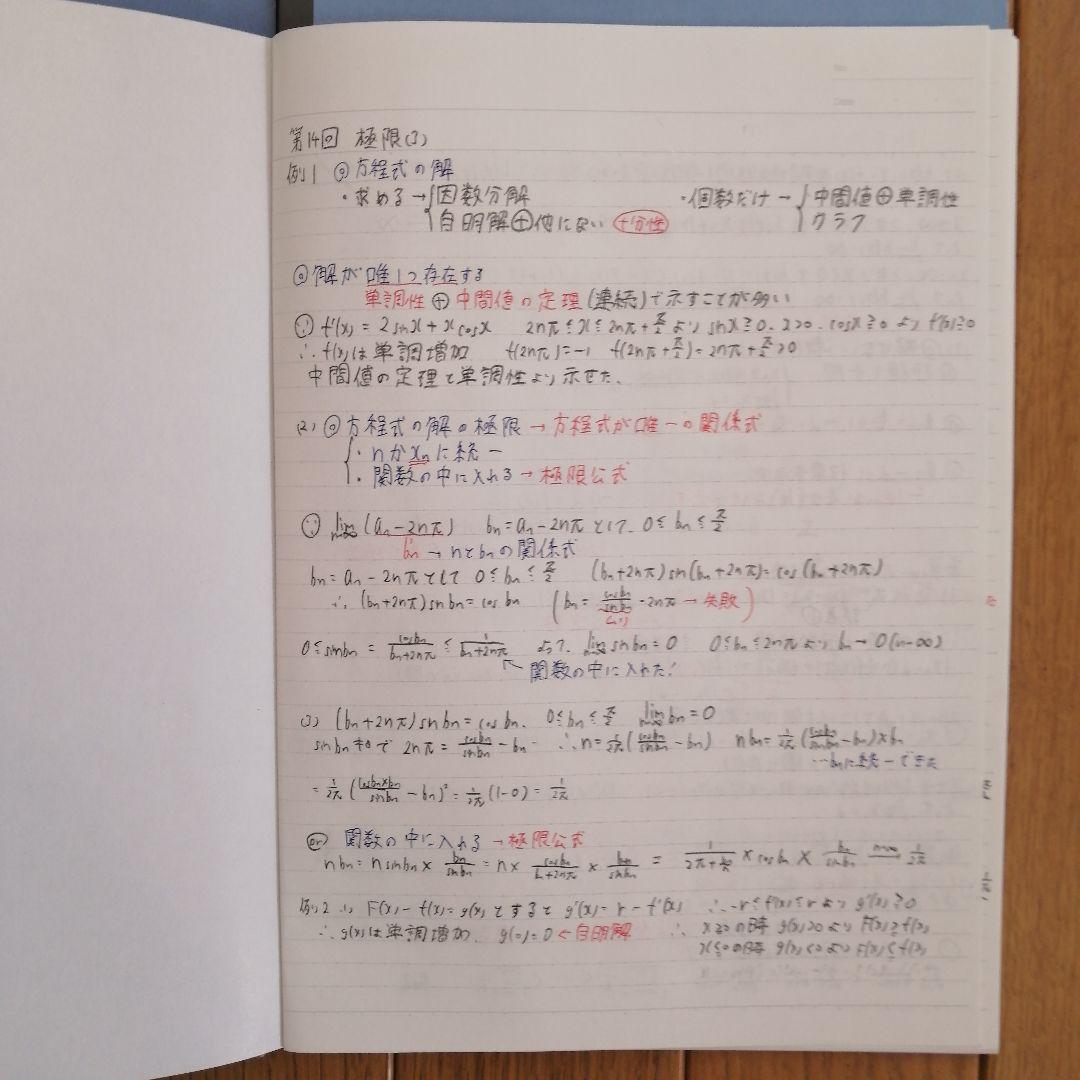 第14回 極限(3)
例1 ◎方程式の解
・求める→{因数分解 ・個数だけ→{中間値⊕単調性
自明解⊕他にない 十分性 グラフ
◎解が唯1つ存在する
単調性⊕中間値の定理(連続)で示すことが多い
∵ f'(x) = 2sinx + xcosx 2nπ≦x≦2nπ+π/2 より sinx≧0, x≧0, cosx≧0 より f'(x)≧0
∴f(x)は単調増加 f(2nπ)=-1 f(2nπ+π/2)=2nπ+π/2>0
中間値の定理と単調性より示せた。
(2) ◎方程式の解の極限→方程式が唯一の関係式
{・nかxnに統一
・関数の中に入れる→極限公式
∵ lim n→∞ (an-2nπ) bn=an-2nπとして 0≦bn≦π/2
bn → nとbnの関係式
bn=an-2nπとして 0≦bn≦π/2 (bn+2nπ)sin(bn+2nπ)=cos(bn+2nπ)
∴(bn+2nπ)sinbn=cosbn (bn=cosbn/sinbn-2nπ→失敗)
0≦sinbn=cosbn/(bn+2nπ)≦1/(bn+2nπ) よって lim n→∞ sinbn=0 0≦bn≦2nπより bn→0(n→∞)
関数の中に入れた!
(3) (bn+2nπ)sinbn=cosbn, 0≦bn≦π/2 lim n→∞ bn=0
sinbn≠0で 2nπ=cosbn/sinbn-bn ∴n=1/2π(cosbn/sinbn-bn) nbn=1/2π(cosbn/sinbn-bn)×bn
…bnに統一できた
=1/2π(cosbn×bn/sinbn-bn)²=1/2π(1-0)=1/2π
or 関数の中に入れる→極限公式
nbn=nsinbn×bn/sinbn=n×cosbn/(bn+2nπ)×bn/sinbn = 1/(2π+bn/n)×cosbn×bn/sinbn n→∞ 1/2π
例2 (1) F(x)-f(x)=g(x)とすると g'(x)=r-f'(x) ∴-r≦f'(x)≦rより g'(x)≧0
∴g(x)は単調増加, g(0)=0←自明解 ∴ x≧0の時 g(x)≧0より F(x)≧f(x)
x≦0の時 g(x)≦0より F(x)≦f(x)